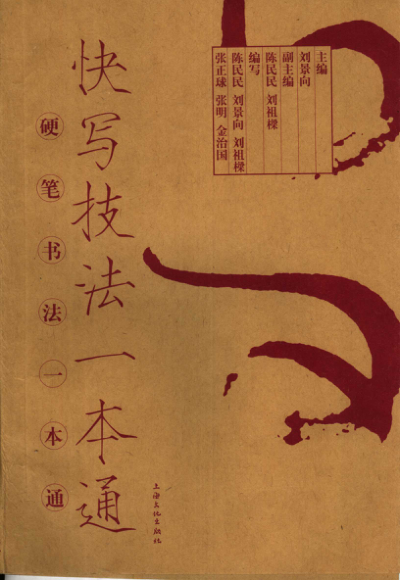 主编
刘景向
副主编
陈民民 刘祖樑
编写
陈民民 刘景向 刘祖樑
张正球 张明 金治国
快写技法一本通
硬笔书法一本通
上海文化出版社